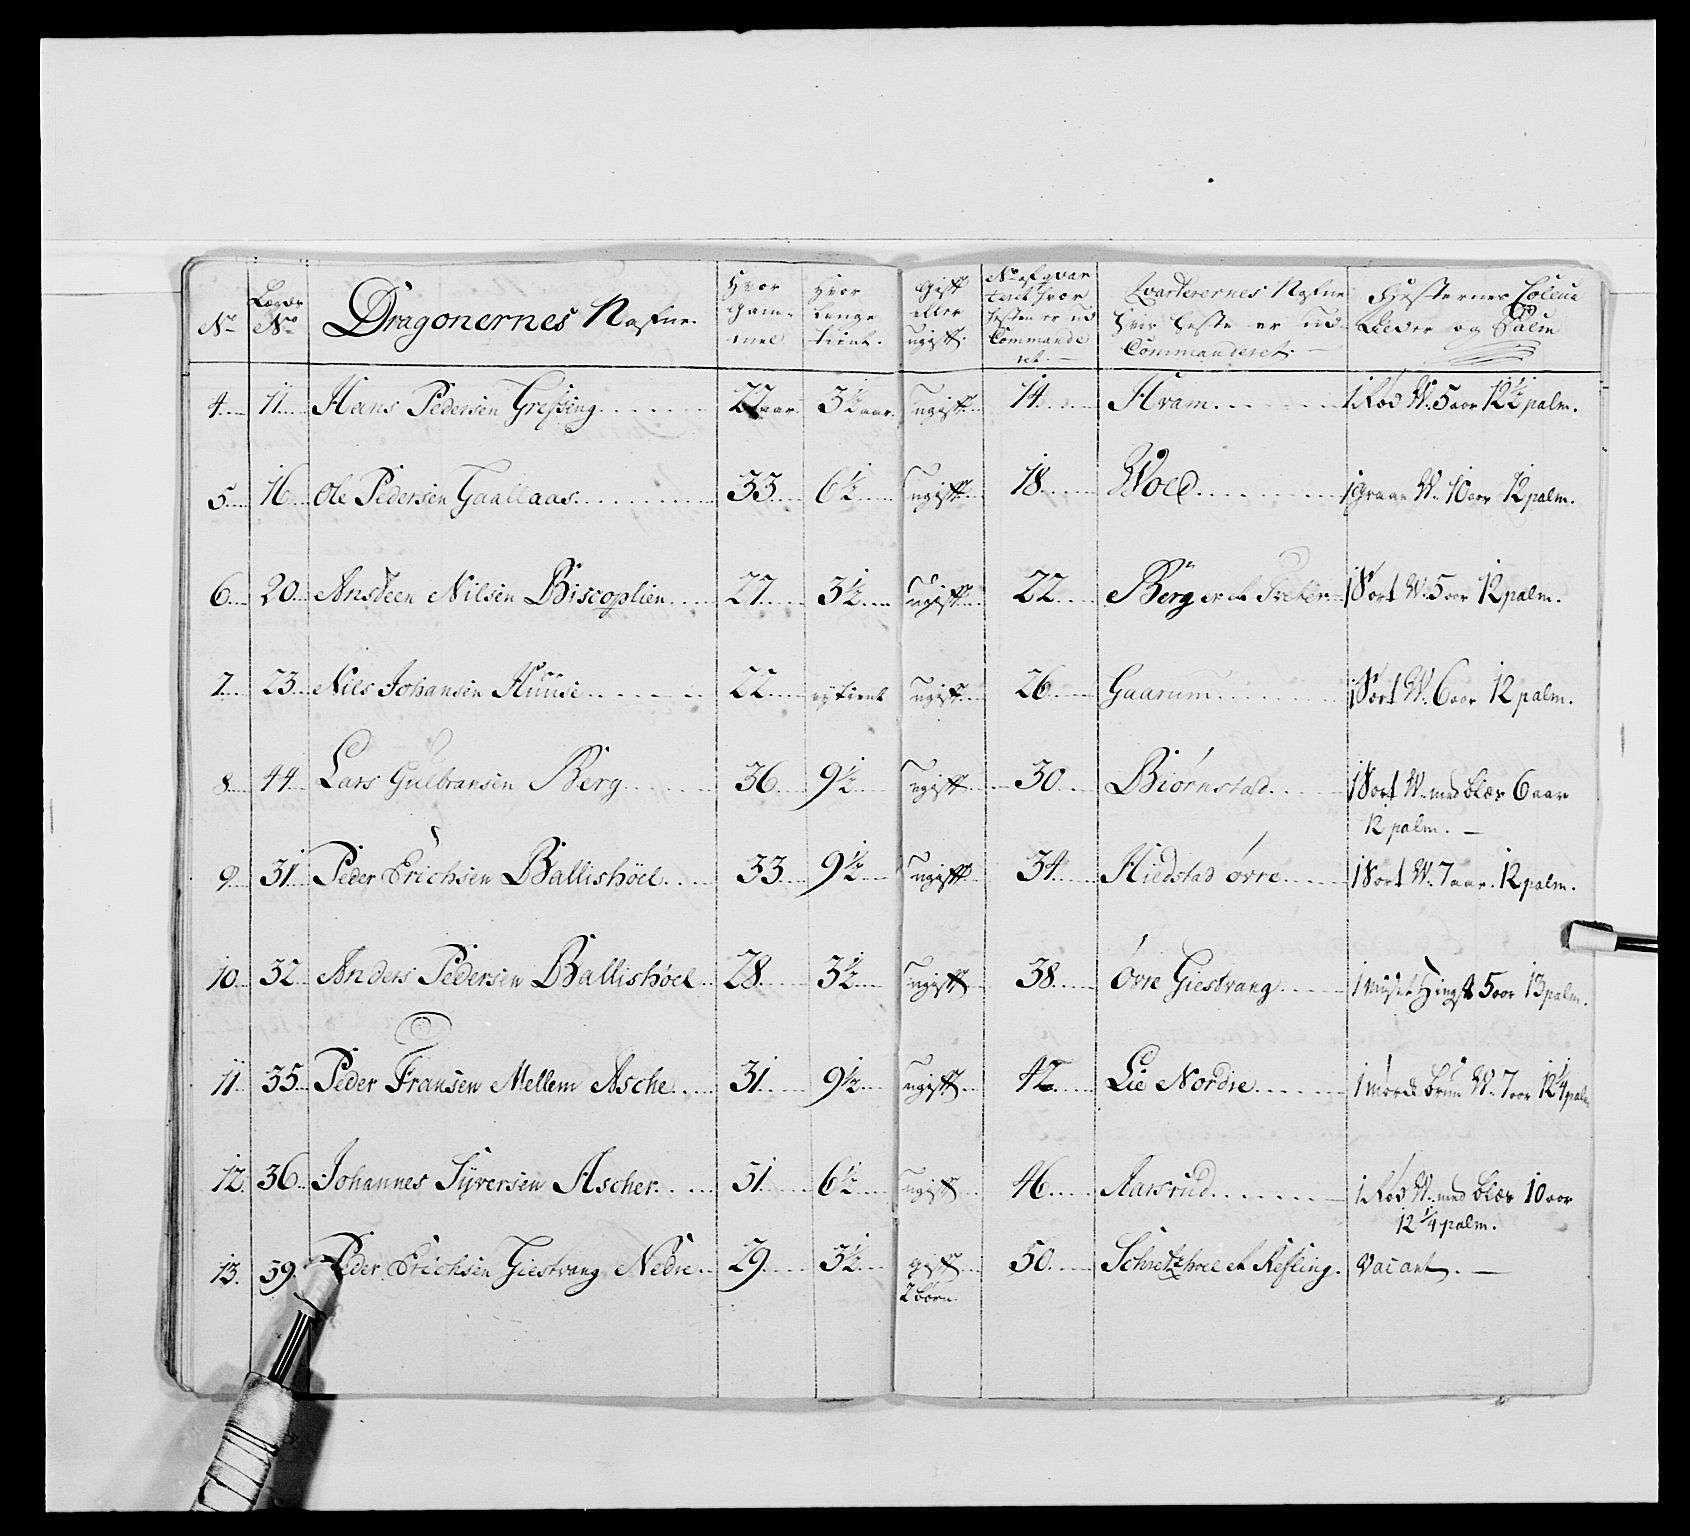 No | Lægds No | Dragonernes Nafne. | Hvor Gammel | Hvor lenge tient. | Gift eller ugift. | No af qvarteret hvor hesten er ud Commanderet. | Qvarterernes Nafne hvis heste er ud Commanderet. | Hesternes Coleur Alder og Palm
4 | 11 | Hans Pedersen Gresing | 22 aar | 3½ aar | ugift | 14 | Hvam | 1 Rød W. 5 aar 12½ palm.
5 | 16 | Ole Pedersen Gaallaas | 33 | 6½ | ugift | 18 | Wold | 1 graae W. 10 aar 12 palm.
6 | 20 | Ansteen Nilsen Biscoplien | 27 | 3½ | ugift | 22 | Berg et | 1 Sort W. 5 aar 12 palm.
7 | 23 | Nils Johansen Huuse | 22 | ey tient | ugift | 26 | Gaarum | 1 Sort W. 6 aar 12 palm.
8 | 44 | Lars Gulbransen Berg | 36 | 9½ | ugift | 30 | Biørnstad | 1 Sort W. med blæs 6 aar
12 palm.
9 | 31 | Peder Erichsen Ballishöel | 33 | 9½ | ugift | 34 | Hiedstad øvre | 1 Sort W. 7 aar. 12 palm.
10 | 32 | Anders Pedersen Ballishöel | 28 | 3½ | ugift | 38 | Øvre Giestvang | 1 Muset Hingst 5 aar 13 palm.
11 | 35 | Peder Fransen Mellem Asche | 31 | 9½ | ugift | 42 | Lie Nordre | 1 mørck brun W. 7 aar 12¼ palm
12 | 36 | Johannes Syversen Ascher | 31 | 6½ | ugift | 46 | Aarsrud | 1 Rød W. med blæs 10 aar
12¼ palm.
13 | 39 | Peder Erichsen Giestvang Nedre | 29 | 3½ | gift | 50 | et Resling. | Vacant.
2 børn.